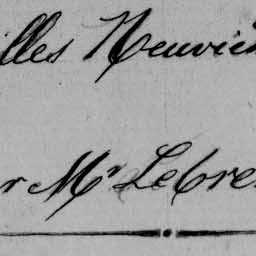 illes Neuvic
r Mr LeCre